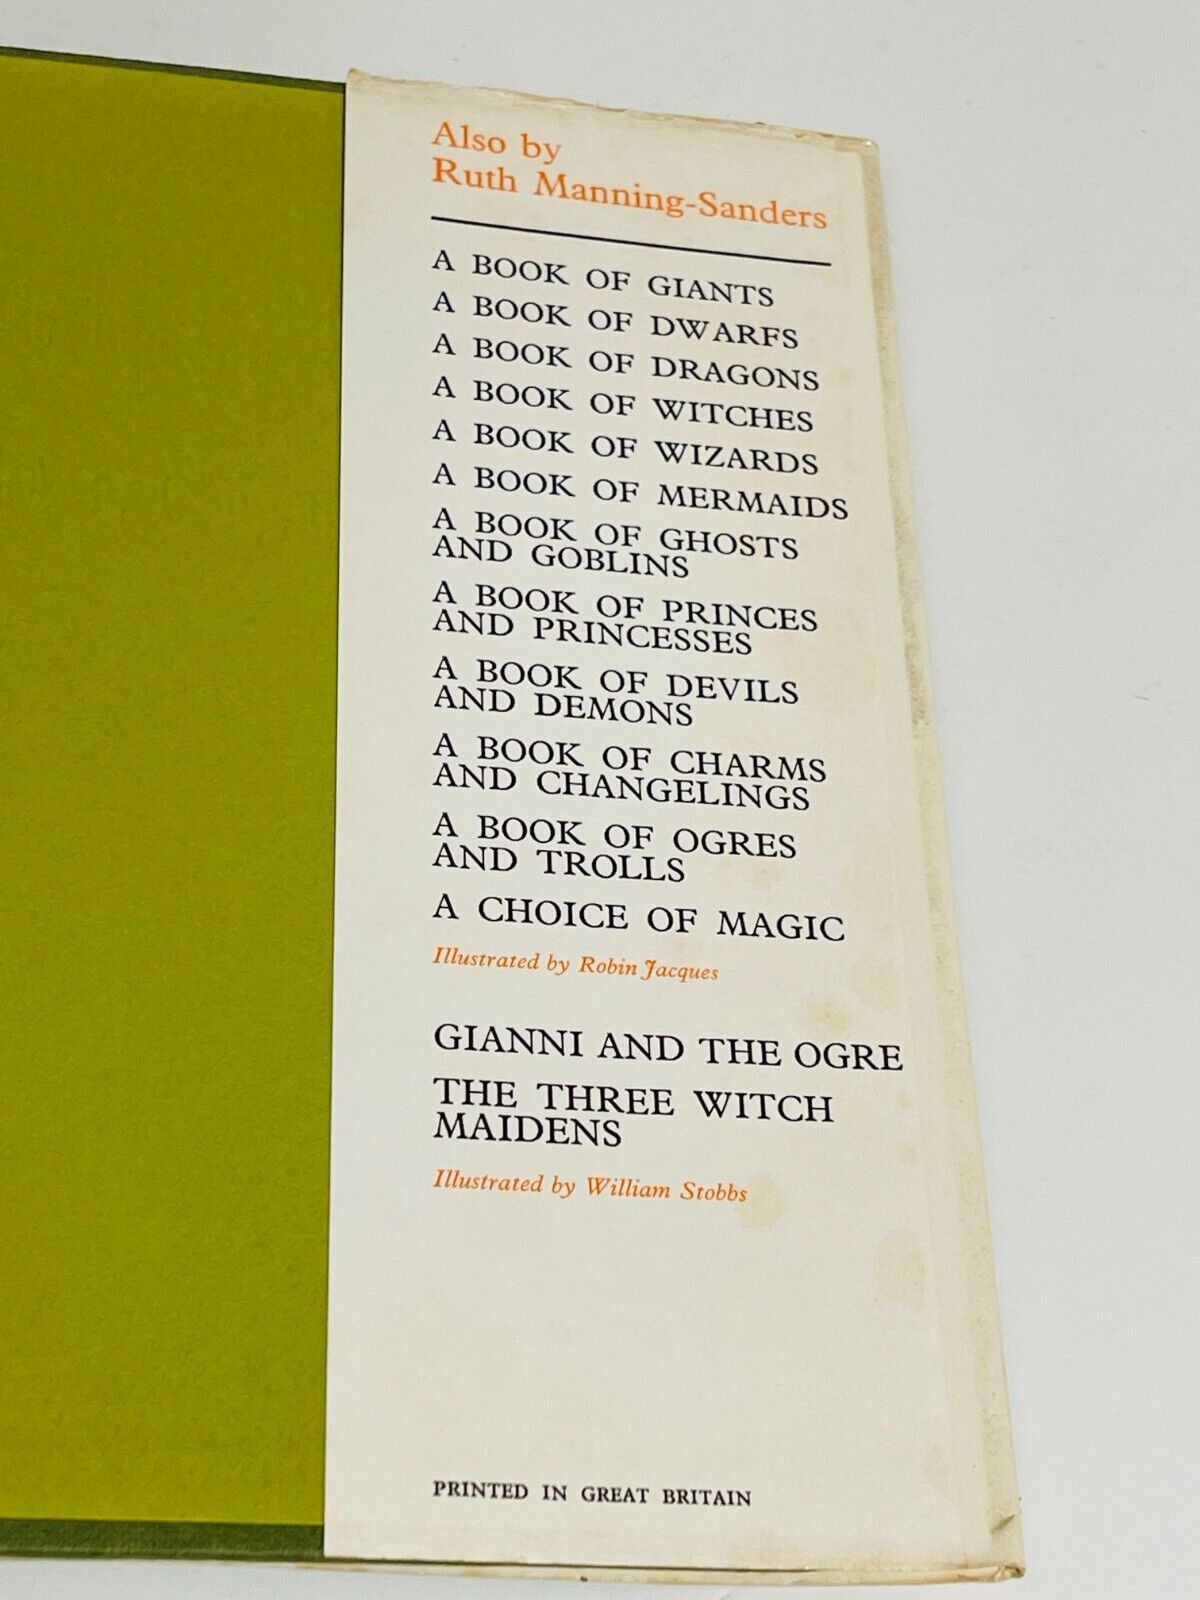 Also by
Ruth Manning-Sanders
A BOOK OF GIANTS
A BOOK OF DWARFS
A BOOK OF DRAGONS
A BOOK OF WITCHES
A BOOK OF WIZARDS
A BOOK OF MERMAIDS
A BOOK OF GHOSTS
AND GOBLINS
A BOOK OF PRINCES
AND PRINCESSES
A BOOK OF DEVILS
AND DEMONS
A BOOK OF CHARMS
AND CHANGELINGS
A BOOK OF OGRES
AND TROLLS
A CHOICE OF MAGIC
Illustrated by Robin Jacques
GIANNI AND THE OGRE
THE THREE WITCH
MAIDENS
Illustrated by William Stobbs
PRINTED IN GREAT BRITAIN